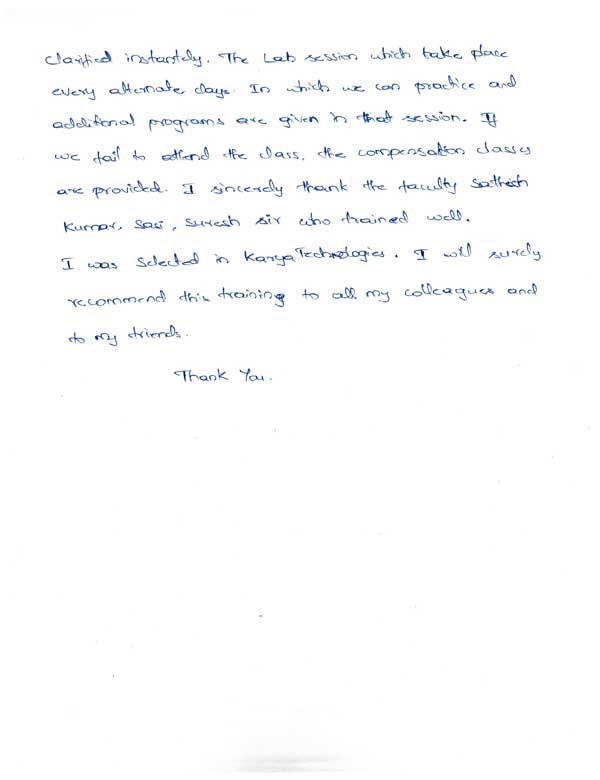 Clarified instantely. The Lab session which take place
every alternate days. In which we can practice and
additional programs are given in that session. If
we fail to attend the class, the compensation classes
are provided. I sincerely thank the faculty Sathish
Kumar, Sasi, Suresh sir who trained well.
I was Selected in Karya Technologies. I will surely
recommend this training to all my colleagues and
to my friends.
Thank You.